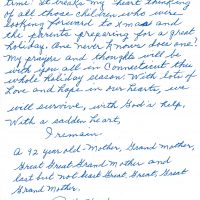 time! It breaks my heart thinking
of all those children who were
looking forward to Xmas and
the parents preparing for a great
holiday. One never knows does one!
My prayers and thoughts will be
with you all in Connecticut this
whole holiday season. With lots of
Love and hope in our hearts, we
will survive, with God's help,
With a sadden heart,
I remain
A 92 year old-Mother, Grand Mother,
Great Great Grand Mother and
last but not least Great, Great, Great
Grand Mother,